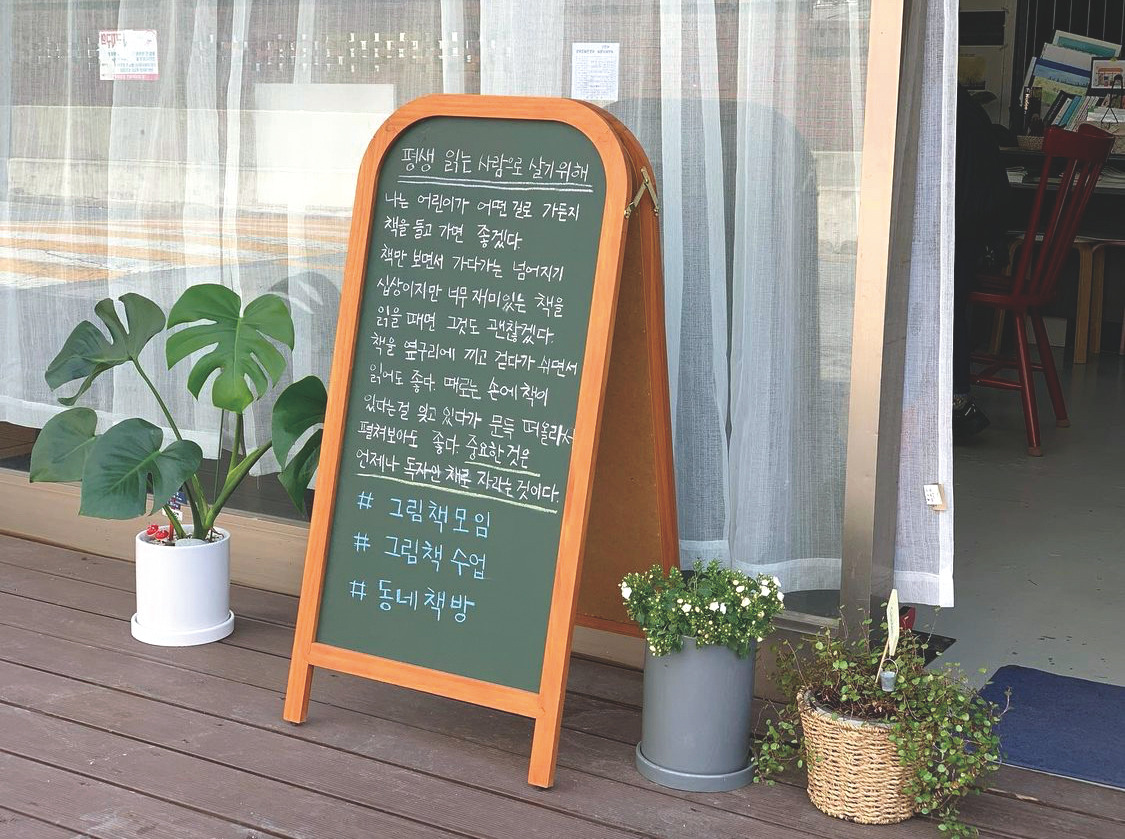 평생 읽는 사람으로 살기위해
나는 어린이가 어떤 길로 가든지
책을 들고 가면 좋겠다.
책만 보면서 가다가는 넘어지기
십상이지만 너무 재미있는 책을
읽을 때면 그것도 괜찮겠다.
책을 옆구리에 끼고 걷다가 쉬면서
읽어도 좋다. 때로는 손에 책이
있다는걸 잊고 있다가 문득 떠올라서
펼쳐보아도 좋다. 중요한 것은
언제나 독자인 채로 자라는 것이다.
# 그림책모임
# 그림책 수업
# 동네책방